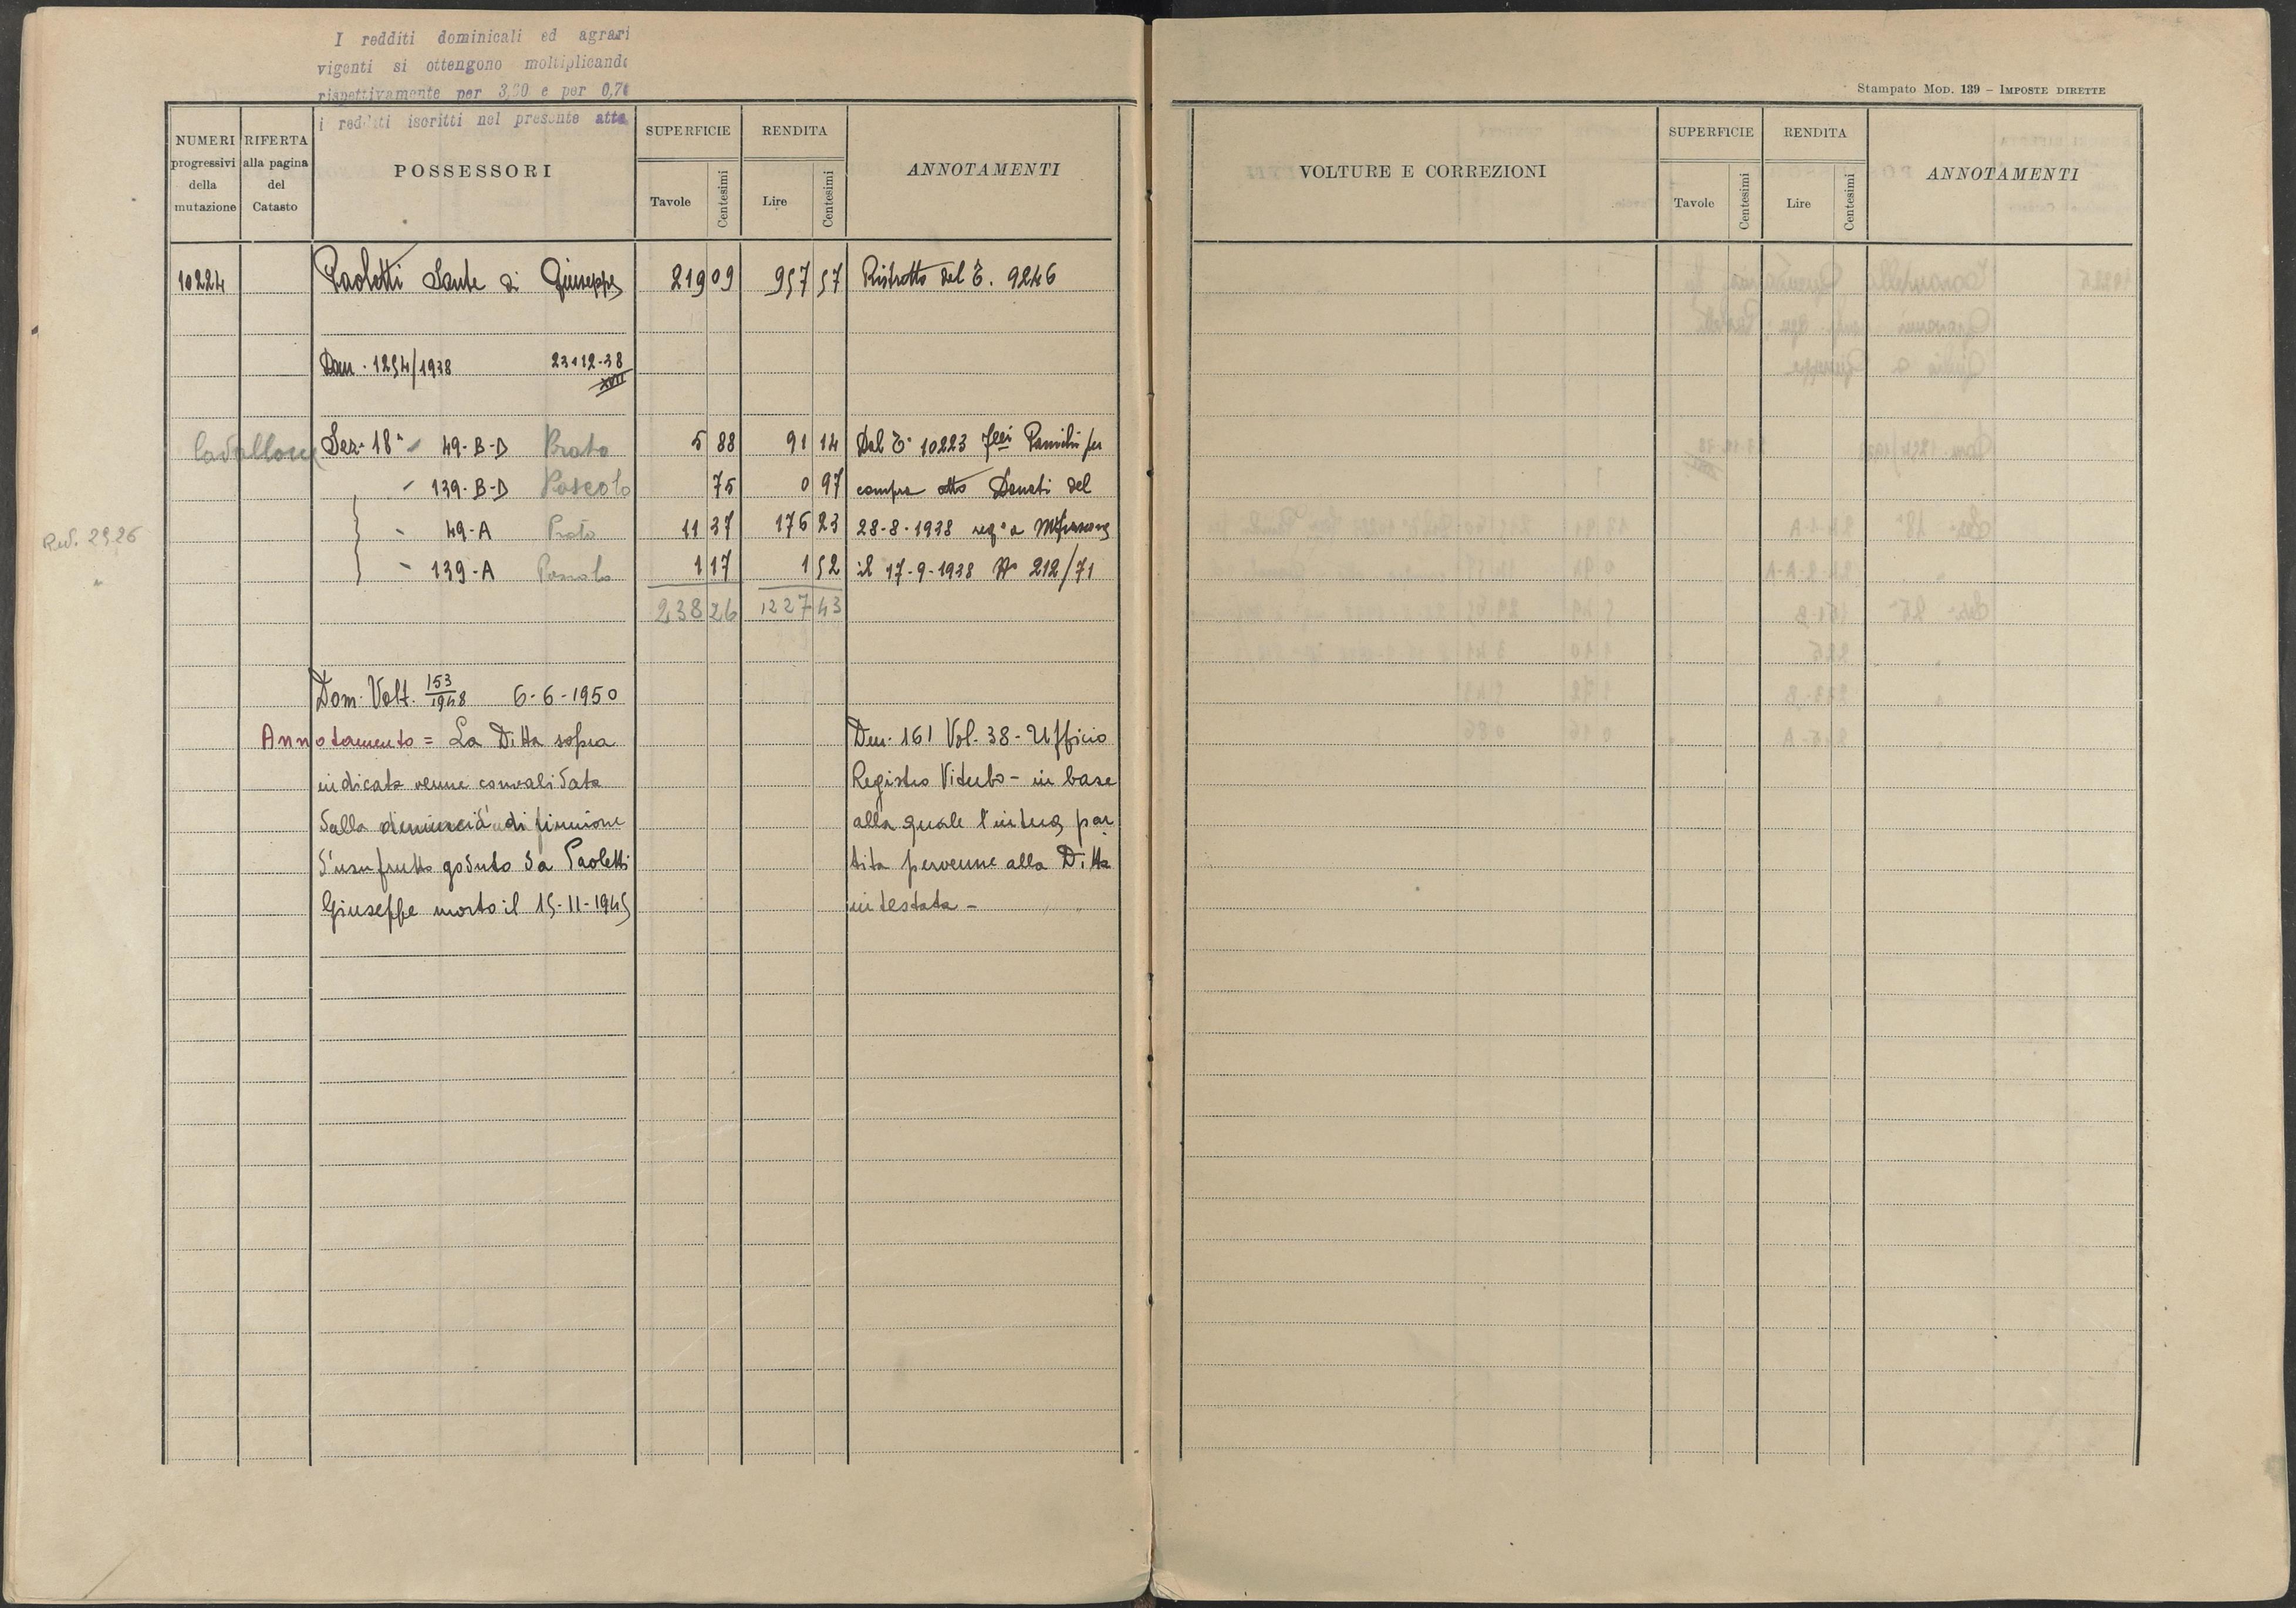 I redditi dominicali ed agrari
vigenti si ottengono moltiplicando
rispettivamente per 3,20 e per 0,70
i redditi iscritti nel presente atto
NUMERI progressivi della mutazione
RIFERTA alla pagina del Catasto
POSSESSORI
SUPERFICIE
Tavole Centesimi
RENDITA
Lire Centesimi
ANNOTAMENTI
10224 Paoletti Sante di Giuseppe 219 09 957 57 Ristretto del T. 9246
Dom. 1254/1938 23-12-38
XVII
Cavallone Sez. 18ª 49-B-D Prato 5 88 91 14 Dal T. 10223 Panichi per
139-B-D Pascolo 75 0 97 compra atto Donati del
49-A Prato 11 37 176 23 28-8-1938 regº a Mfiascone
139-A Pascolo 1 17 1 52 il 17-9-1938 Nº 212/71
238 26 1227 43
Red. 2926
"
Dom. Volt. 153/1948 6-6-1950
Annotamento = La Ditta sopra Den. 161 Vol. 38 - Ufficio
indicata venne convalidata Registro Viterbo - in base
dalla denuncia di riunione alla quale l'intera par
d'usufrutto goduto da Paoletti tita pervenne alla Ditta
Giuseppe morto il 15-11-1945 intestata -
Stampato Mod. 139 - Imposte dirette
VOLTURE E CORREZIONI
SUPERFICIE
Tavole Centesimi
RENDITA
Lire Centesimi
ANNOTAMENTI